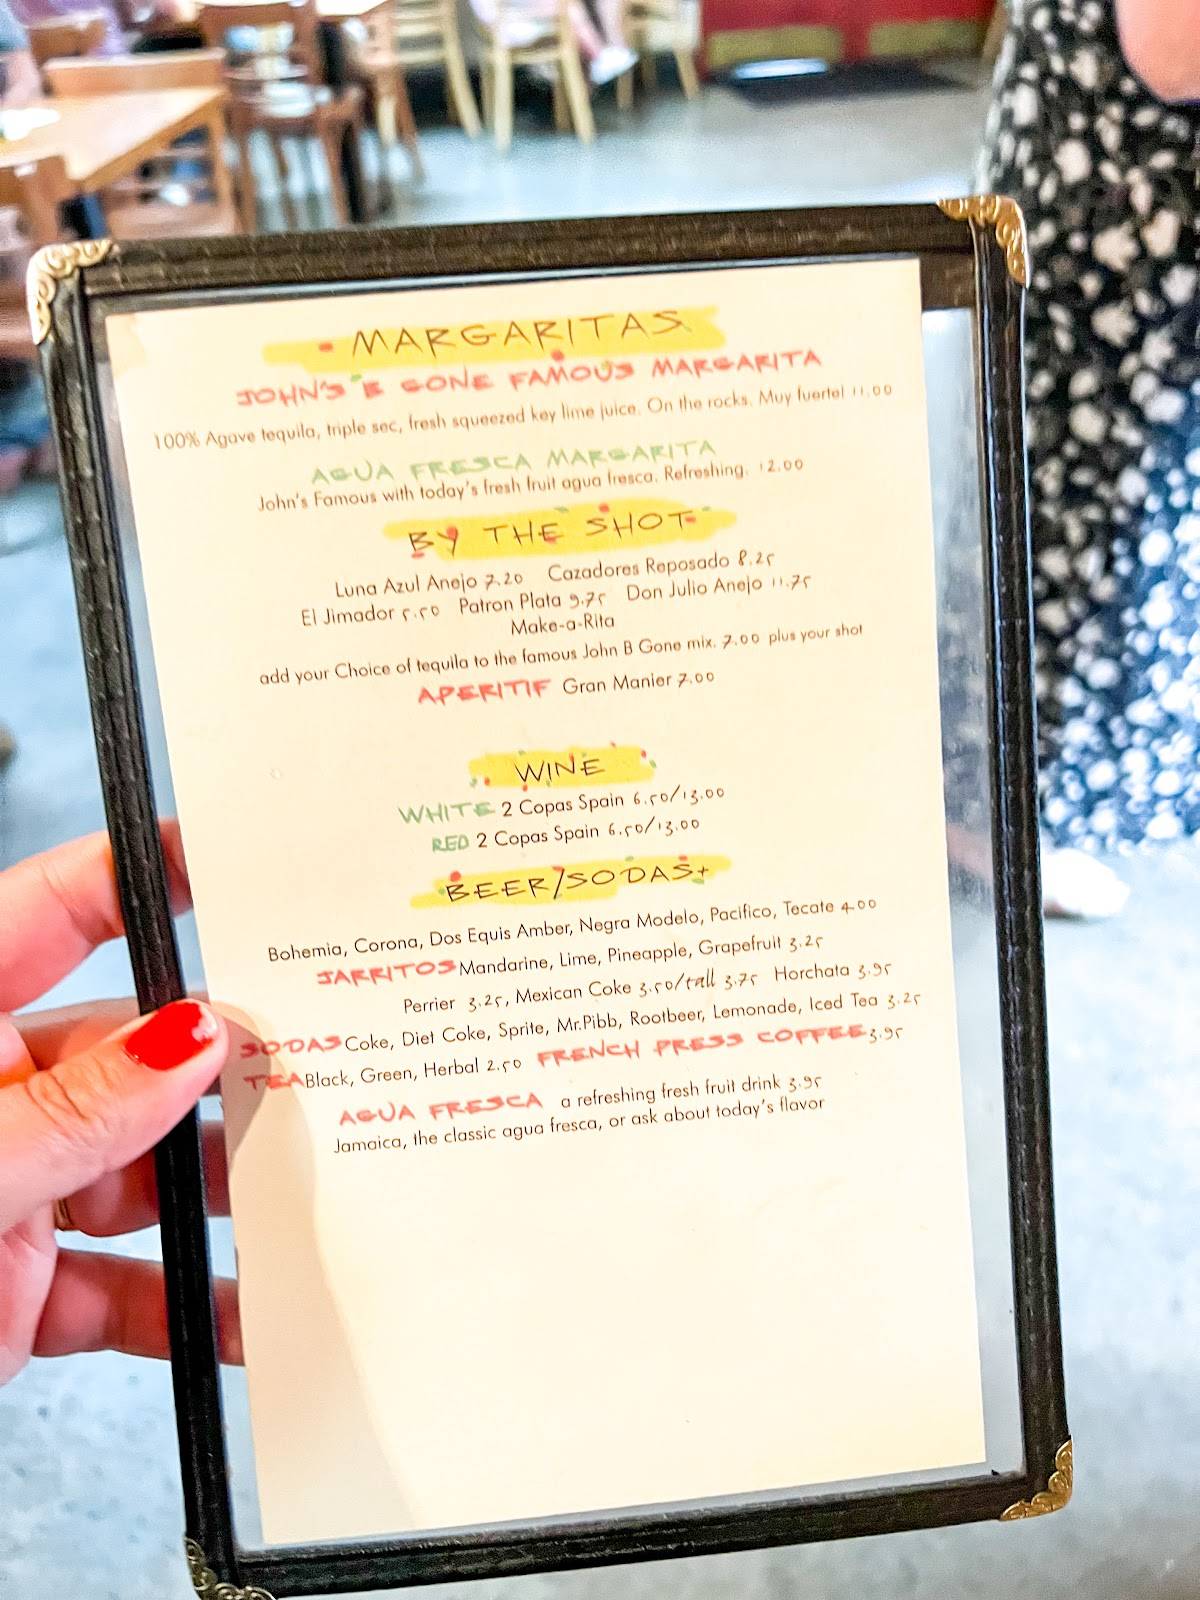 MARGARITAS
JOHN'S B GONE FAMOUS MARGARITA
100% Agave tequila, triple sec, fresh squeezed key lime juice. On the rocks. Muy fuerte! 11.00
AGUA FRESCA MARGARITA
John's Famous with today's fresh fruit agua fresca. Refreshing. 12.00
BY THE SHOT
Luna Azul Anejo 7.20 Cazadores Reposado 8.25
El Jimador 5.50 Patron Plata 9.75 Don Julio Anejo 11.75
Make-a-Rita
add your Choice of tequila to the famous John B Gone mix. 7.00 plus your shot
APERITIF Gran Manier 7.00
WINE
WHITE 2 Copas Spain 6.50/13.00
RED 2 Copas Spain 6.50/13.00
BEER/SODAS+
Bohemia, Corona, Dos Equis Amber, Negra Modelo, Pacifico, Tecate 4.00
JARRITOS Mandarine, Lime, Pineapple, Grapefruit 3.25
Perrier 3.25, Mexican Coke 3.50/tall 3.75 Horchata 3.95
SODAS Coke, Diet Coke, Sprite, Mr.Pibb, Rootbeer, Lemonade, Iced Tea 3.25
TEA Black, Green, Herbal 2.50 FRENCH PRESS COFFEE 3.95
AGUA FRESCA a refreshing fresh fruit drink 3.95
Jamaica, the classic agua fresca, or ask about today's flavor